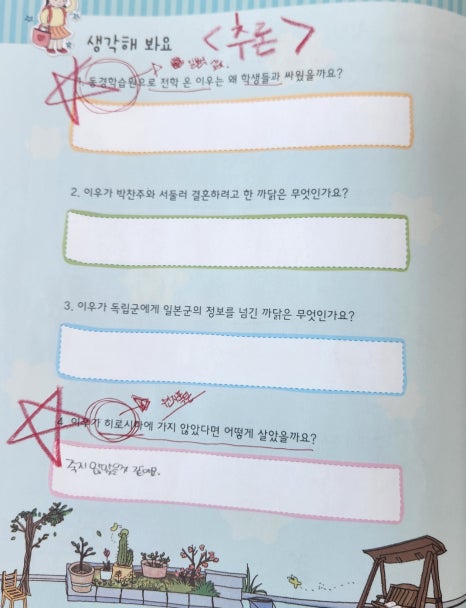 생각해 봐요 <추론>
1. 동경학습원으로 전학 온 이우는 왜 학생들과 싸웠을까요?
2. 이우가 박찬주와 서둘러 결혼하려고 한 까닭은 무엇인가요?
3. 이우가 독립군에게 일본군의 정보를 넘긴 까닭은 무엇인가요?
4. 이우가 히로시마에 가지 않았다면 어떻게 살았을까요?
죽지 않았을거 같아요.